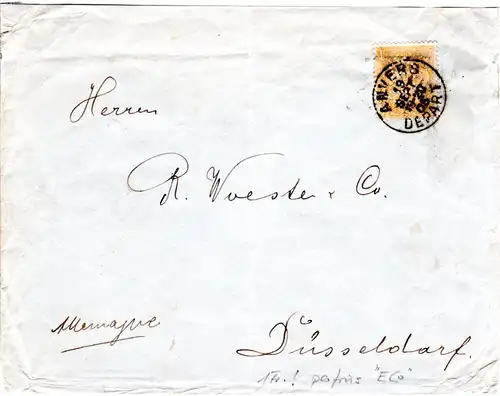 ANVERS
DEPART
Herren
R. Woeste & Co.
Allemagne
Düsseldorf.
1Fr.! perfins "ECo"